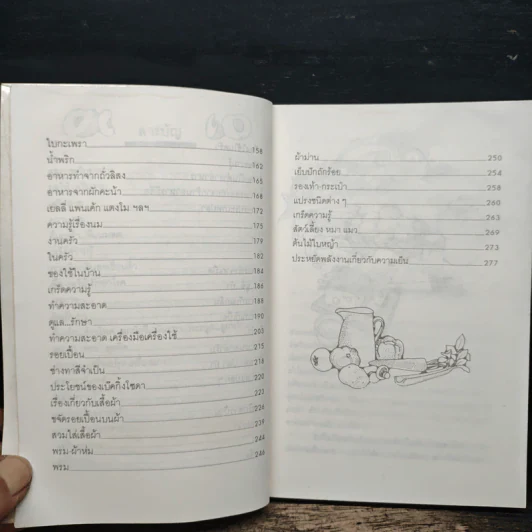 ใบกะเพรา 158
น้ำพริก 162
อาหารทำจากถั่วลิสง 165
อาหารจากผักคะน้า 168
เยลลี่ แพนเค้ก แตงโม ฯลฯ 172
ความรู้เรื่องนม 175
งานครัว 179
ในครัว 182
ของใช้ในบ้าน 184
เกร็ดความรู้ 186
ทำความสะอาด 188
ดูแล...รักษา 190
ทำความสะอาด เครื่องมือเครื่องใช้ 203
รอยเปื้อน 215
ช่างทาสีจำเป็น 218
ประโยชน์ของเบ็คกิ้งโซดา 220
เรื่องเกี่ยวกับเสื้อผ้า 222
ขจัดรอยเปื้อนบนผ้า 226
สวมใส่เสื้อผ้า 239
พรม-ผ้าห่ม 244
พรม 246
ผ้าม่าน 250
เย็บปักถักร้อย 254
รองเท้า-กระเป๋า 258
แปรงชนิดต่าง ๆ 260
เกร็ดความรู้ 263
สัตว์เลี้ยง หมา แมว 269
ต้นไม้ใบหญ้า 273
ประหยัดพลังงานเกี่ยวกับความเย็น 277